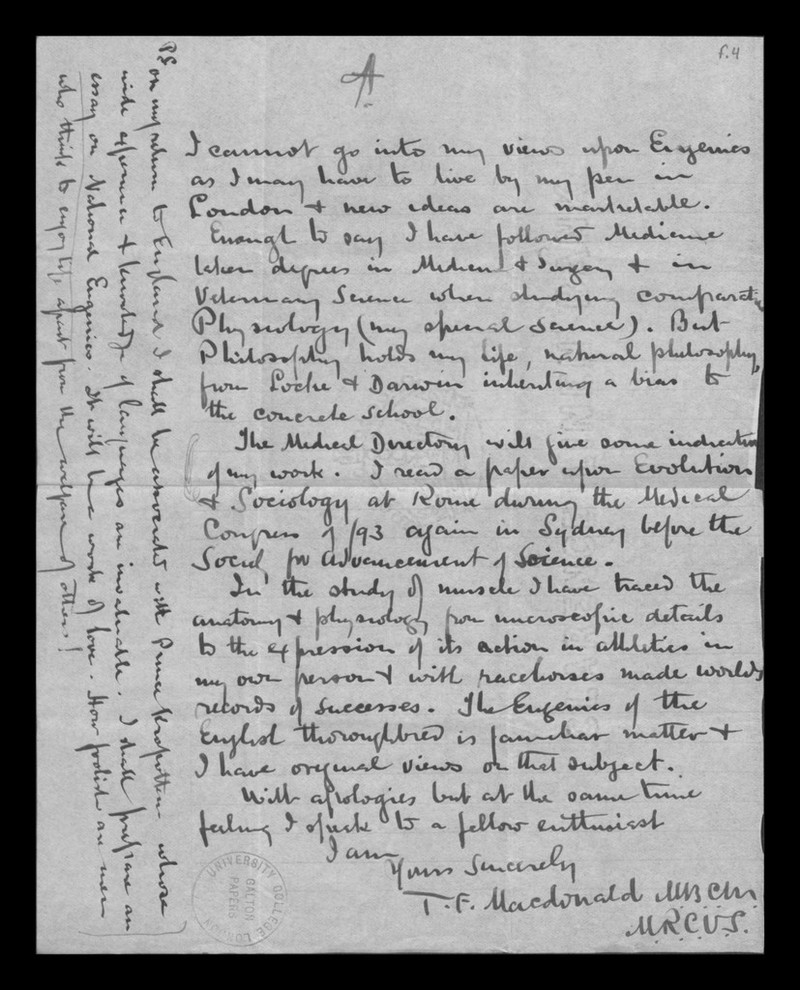 f.4
A
I cannot go into my views upon Eugenics
as I may have to live by my pen in
London & new ideas are marketable.
Enough to say I have followed Medicine
taken degrees in Medicine & Surgery & in
Veterinary Science when studying comparative
Physiology (my special science). But
Philosophy holds my life, natural philosophy,
from Locke & Darwin inheriting a bias to
the concrete school.
The Medical Directory will give some indication
of my work. I read a paper upon Evolution
& Sociology at Rome during the Medical
Congress of /93 again in Sydney before the
Society for Advancement of Science.
In the study of muscle I have traced the
anatomy & physiology from microscopic details
to the expression of its action in athletics in
my own person & with racehorses made worlds
records of successes. The Eugenics of the
English thoroughbred is familiar matter &
I have original views on that subject.
With apologies but at the same time
feeling I speak to a fellow enthusiast
I am
Yours Sincerely
T. F. Macdonald MB CM
M.R.C.V.S.
PS on my return to England I shall be associated with Prince Kropotkin whose
wide experience & knowledge of languages are invaluable. I shall prepare an
essay on National Eugenics. It will be a work of love. How foolish are men
who think to enjoy life apart from the welfare of others!
UNIVERSITY COLLEGE LONDON
GALTON
PAPERS